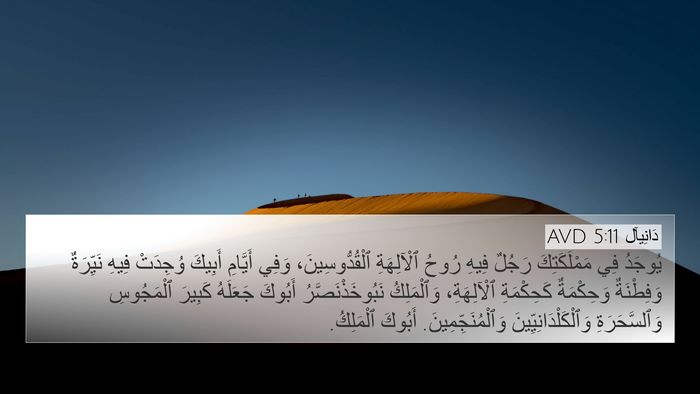 دَانِيآل 5:11 AVD
يُوجَدُ فِي مَمْلَكَتِكَ رَجُلٌ فِيهِ رُوحُ ٱلْآلِهَةِ ٱلْقُدُّوسِينَ، وَفِي أَيَّامِ أَبِيكَ وُجِدَتْ فِيهِ نَيِّرَةٌ
وَفِطْنَةٌ وَحِكْمَةٌ كَحِكْمَةِ ٱلْآلِهَةِ، وَٱلْمَلِكُ نَبُوخَذْنَصَّرُ أَبُوكَ جَعَلَهُ كَبِيرَ ٱلْمَجُوسِ
وَٱلسَّحَرَةِ وَٱلْكَلْدَانِيِّينَ وَٱلْمُنَجِّمِينَ. أَبُوكَ ٱلْمَلِكُ.